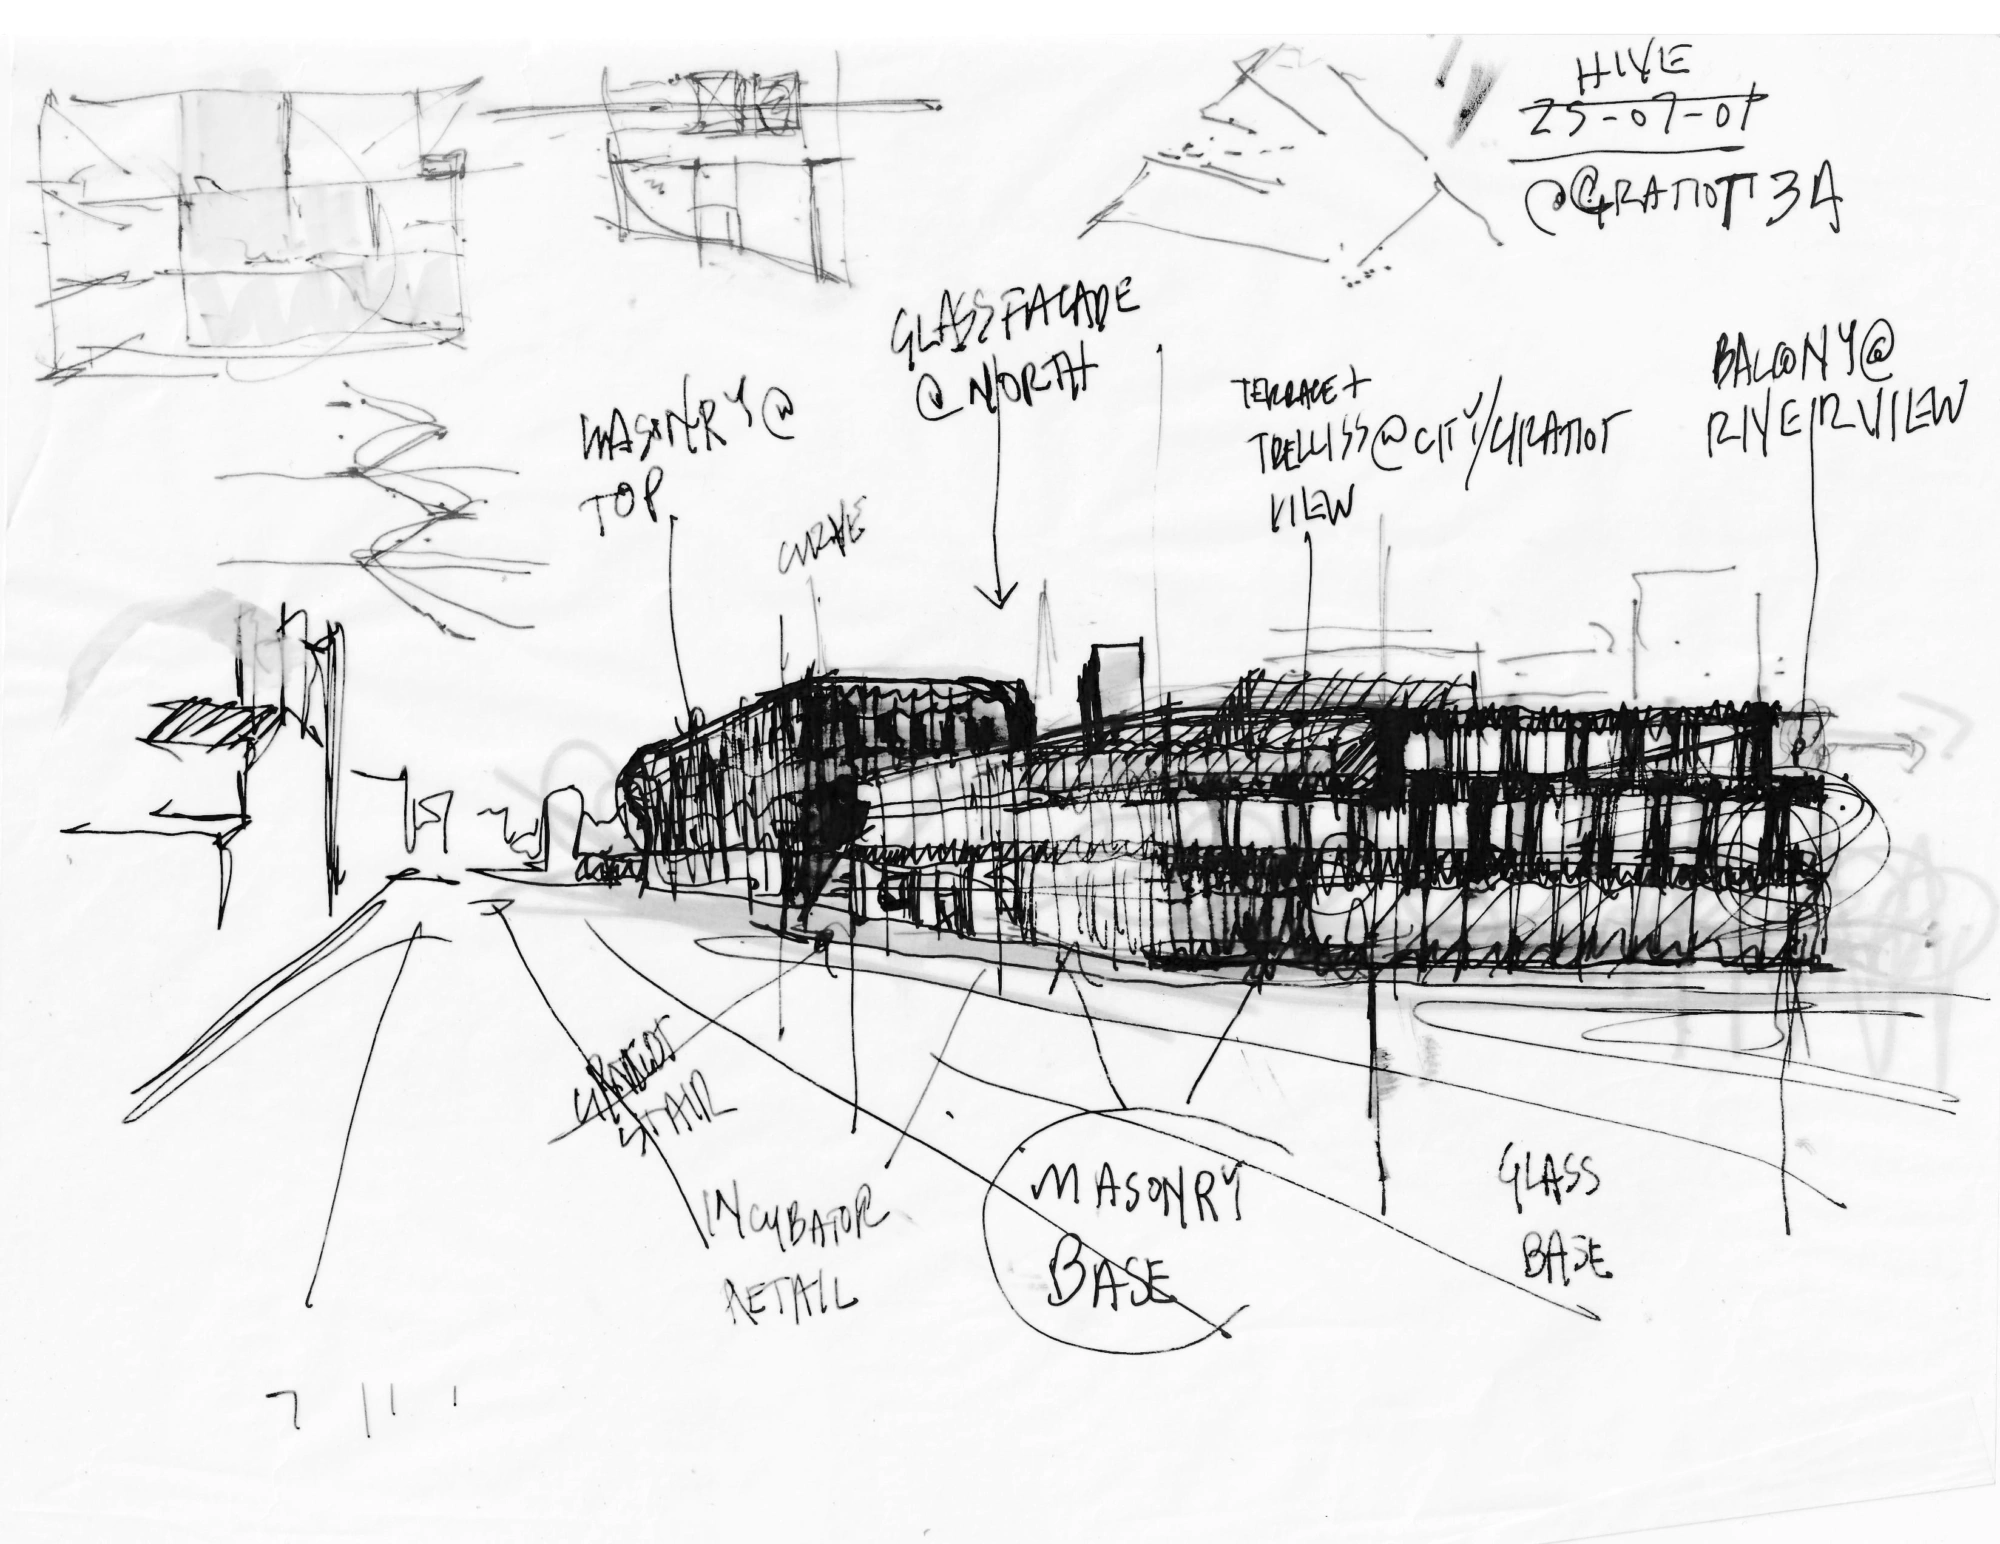 HIVE
25-07-01
@GRATIOT 3A
GLASS FACADE
@ NORTH
BALCONY @
RIVERVIEW
MASONRY @
TOP
TERRACE +
TRELLISS @ CITY/GRATIOT
VIEW
CURVE
GRATIOT
STAIR
INCUBATOR
RETAIL
MASONRY
BASE
GLASS
BASE